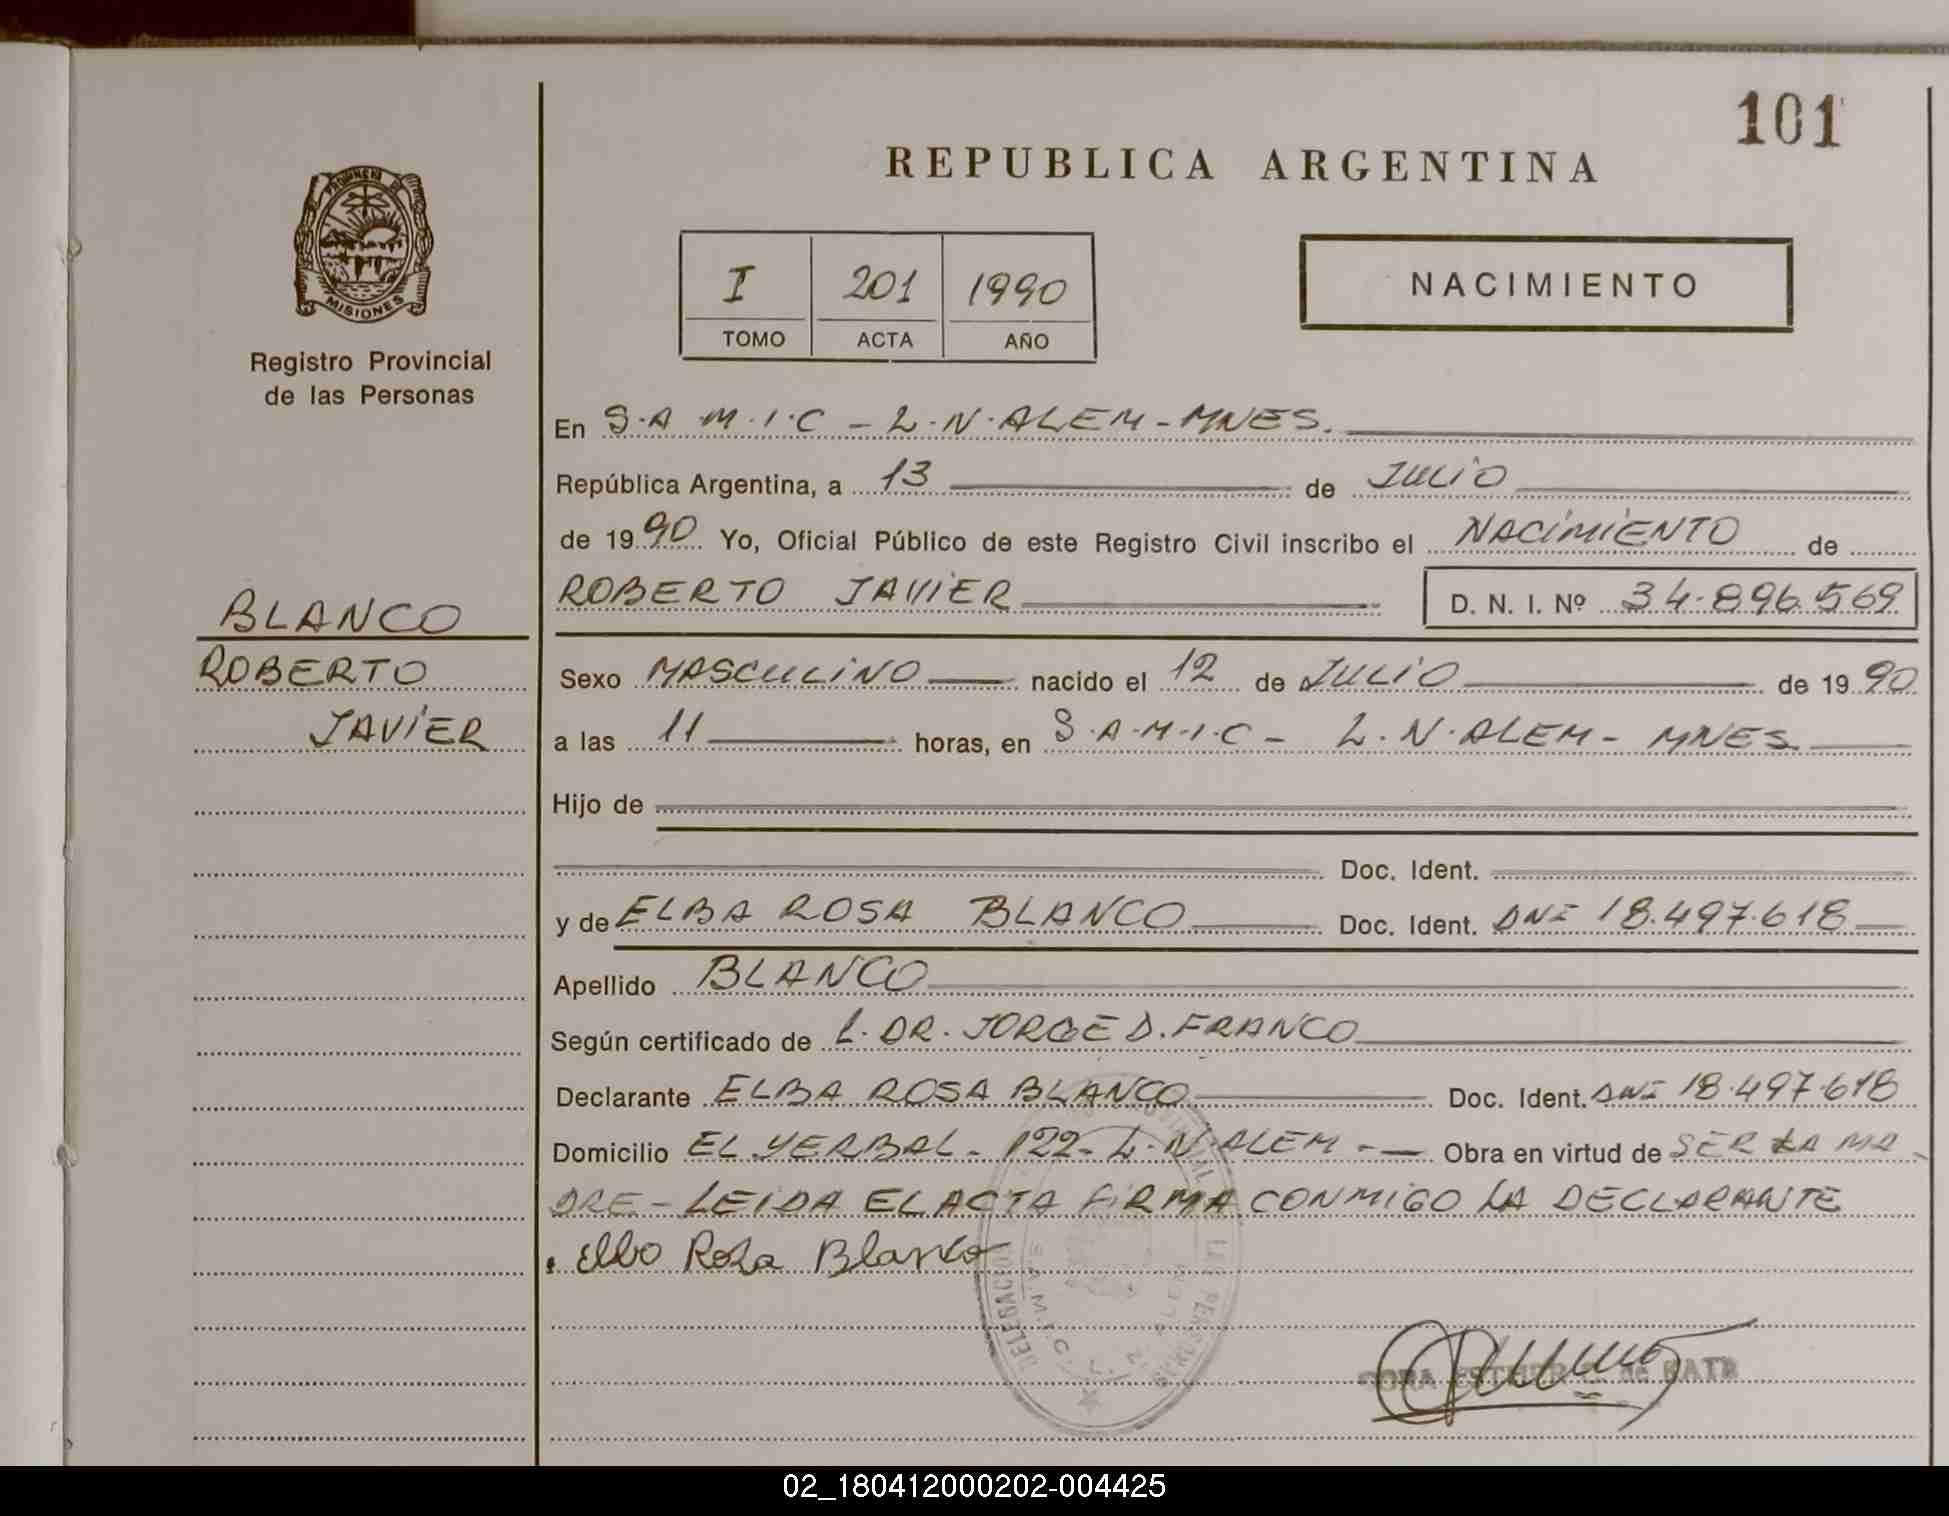 101
REPUBLICA ARGENTINA
PROVINCIA DE
MISIONES
Registro Provincial
de las Personas
I 201 1990
TOMO ACTA AÑO
NACIMIENTO
En S.A.M.I.C - L.N.ALEM-MNES.
República Argentina, a 13 de JULIO
de 1990 Yo, Oficial Público de este Registro Civil inscribo el NACIMIENTO de
ROBERTO JAVIER D. N. I. Nº 34.896.569
BLANCO
ROBERTO
JAVIER
Sexo MASCULINO nacido el 12 de JULIO de 1990
a las 11 horas, en S.A.M.I.C - L.N.ALEM - MNES
Hijo de
Doc. Ident.
y de ELBA ROSA BLANCO Doc. Ident. DNI 18.497.618
Apellido BLANCO
Según certificado de L. DR. JORGE D. FRANCO
Declarante ELBA ROSA BLANCO Doc. Ident. DNI 18.497.618
Domicilio EL YERBAL - 122 - L.N.ALEM - Obra en virtud de SER LA MA-
DRE - LEIDA EL ACTA FIRMA CONMIGO LA DECLARANTE
Elba Rosa Blanco
DELEGACION LAS PERSONAS
S.A.M.I.C. L. N. ALEM
ESTHER de KATR
02_180412000202-004425